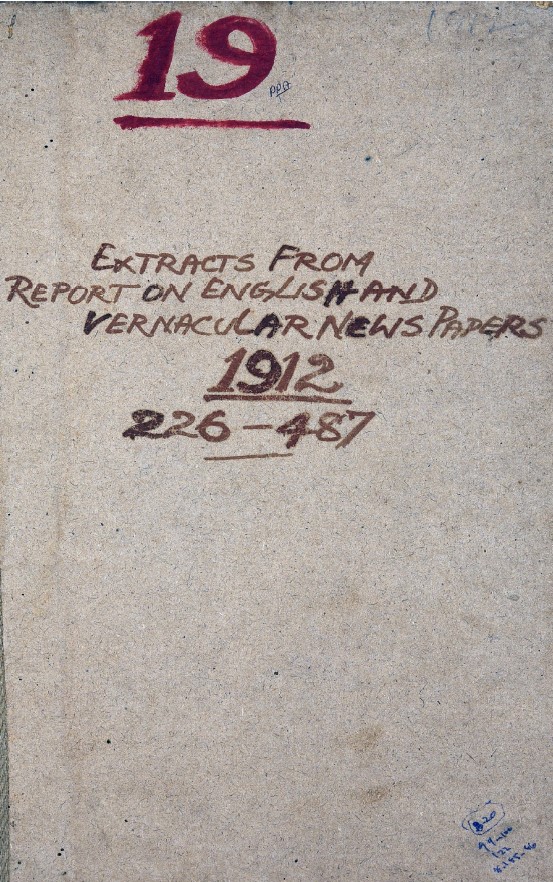 19
EXTRACTS FROM
REPORT ON ENGLISH AND
VERNACULAR NEWS PAPERS
1912
226-487